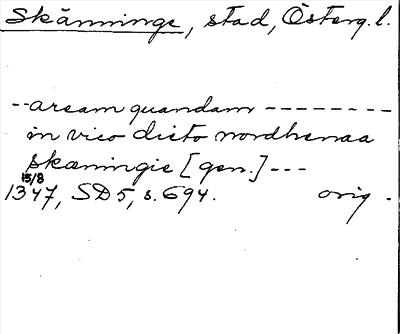 Skänninge, stad, Österg. l.
-- aream quandam --------
in vico dicto nordhenaa
skæningie [gen.] ---
15/8
1347, SD 5, s. 694. orig.